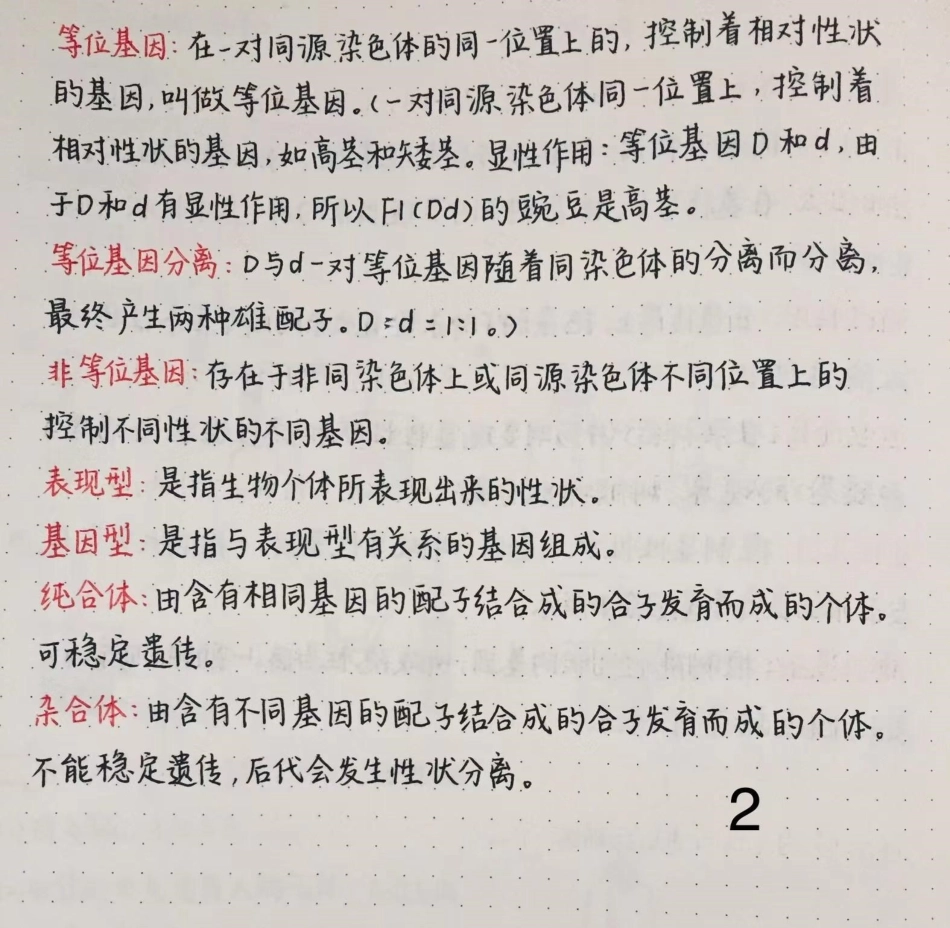 等位基因：在一对同源染色体的同一位置上的，控制着相对性状
的基因，叫做等位基因。（一对同源染色体同一位置上，控制着
相对性状的基因，如高茎和矮茎。显性作用：等位基因D和d，由
于D和d有显性作用，所以F1(Dd)的豌豆是高茎。
等位基因分离：D与d一对等位基因随着同染色体的分离而分离，
最终产生两种雄配子。D:d=1:1。）
非等位基因：存在于非同染色体上或同源染色体不同位置上的
控制不同性状的不同基因。
表现型：是指生物个体所表现出来的性状。
基因型：是指与表现型有关系的基因组成。
纯合体：由含有相同基因的配子结合成的合子发育而成的个体。
可稳定遗传。
杂合体：由含有不同基因的配子结合成的合子发育而成的个体。
不能稳定遗传，后代会发生性状分离。
2